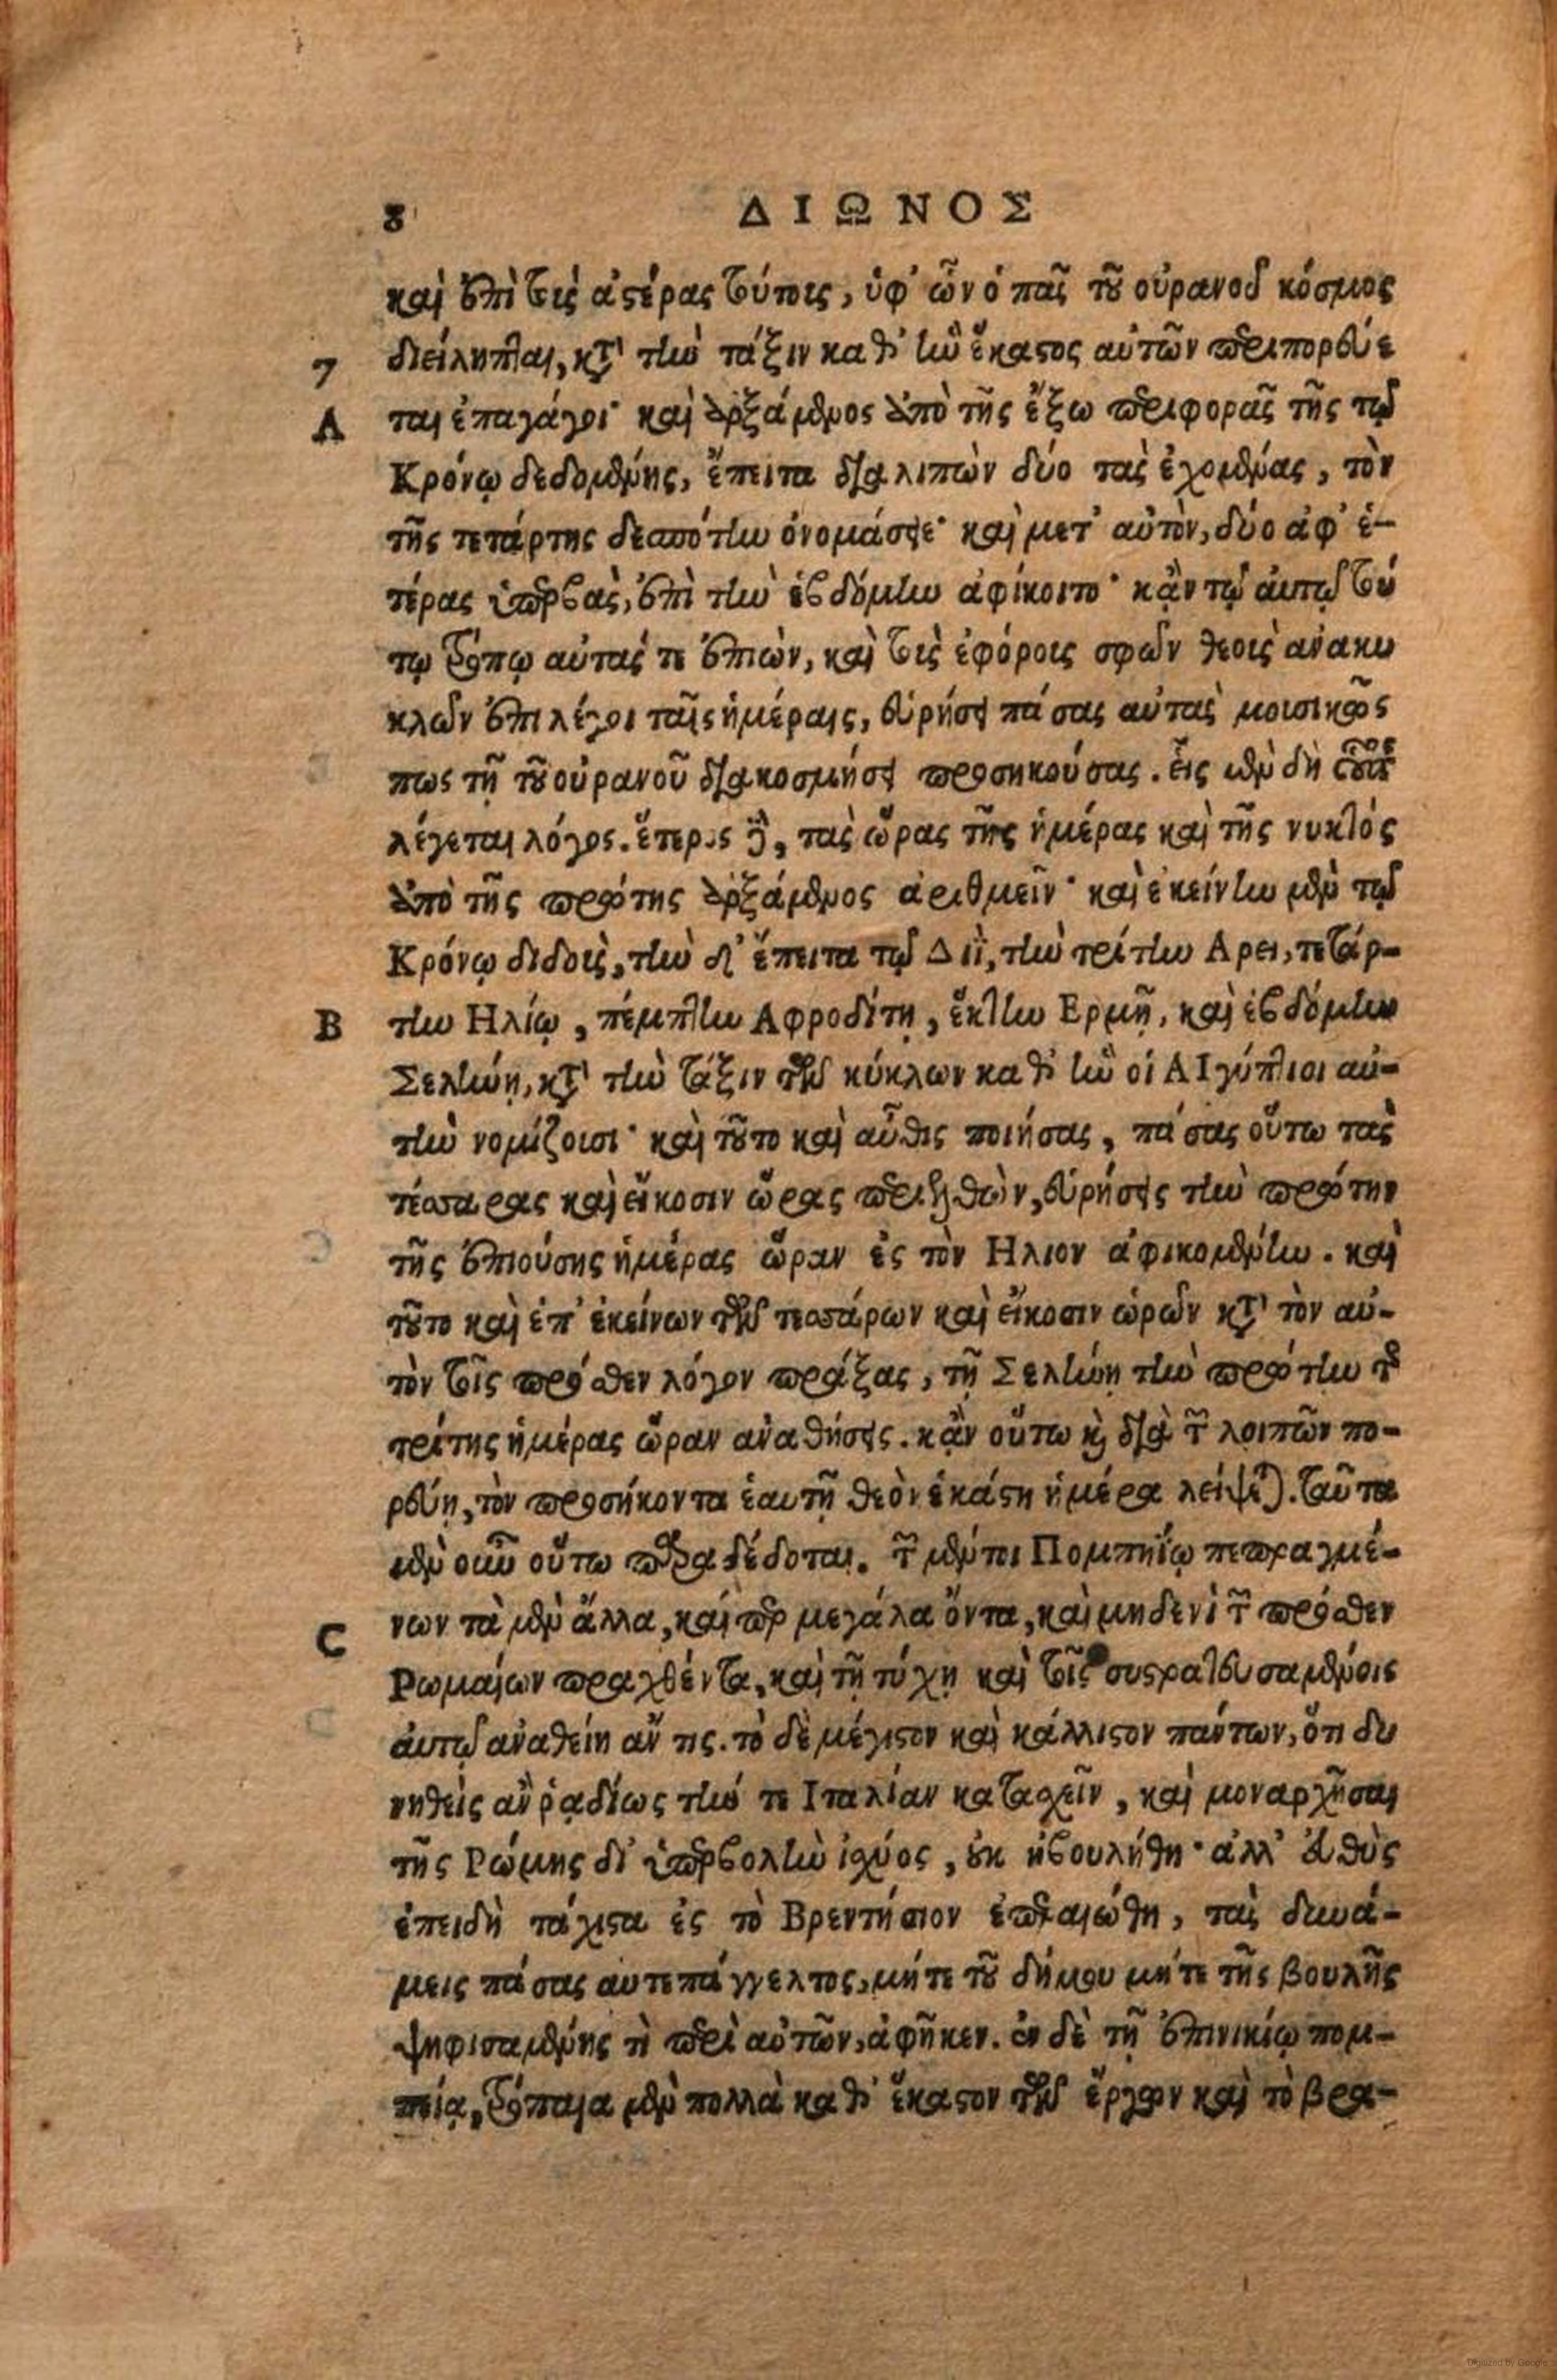 8 ΔΙΩΝΟΣ
καὶ ἐπὶ τοὺς ἀστέρας τούτους, ὑφ' ὧν ὁ πᾶς τοῦ οὐρανοῦ κόσμος
7 διείληπται, κατὰ τὴν τάξιν καθ' ἣν ἕκαστος αὐτῶν περιπορεύε
A ται ἐπαγάγοι· καὶ ἀρξάμενος ἀπὸ τῆς ἔξω περιφορᾶς τῆς τῷ
Κρόνῳ δεδομένης, ἔπειτα διαλιπὼν δύο τὰς ἐχομένας, τὸν
τῆς τετάρτης δεσπότην ὀνομάσειε· καὶ μετ' αὐτὸν, δύο ἀφ' ἑ-
τέρας ὑπερβὰς, ἐπὶ τὴν ἑβδόμην ἀφίκοιτο· κᾂν τῷ αὐτῷ τού
τῳ τρόπῳ αὐτάς τε ἐπιὼν, καὶ τοὺς ἐφόρους σφῶν θεοὺς ἀνακυ
κλῶν ἐπιλέγοι ταῖς ἡμέραις, εὑρήσει πάσας αὐτὰς μουσικῶς
πως τῇ τοῦ οὐρανοῦ διακοσμήσει προσηκούσας. εἷς μὲν δὴ οὗτος
λέγεται λόγος. ἕτερος δὲ, τὰς ὥρας τῆς ἡμέρας καὶ τῆς νυκτὸς
ἀπὸ τῆς πρώτης ἀρξάμενος ἀριθμεῖν· καὶ ἐκείνην μὲν τῷ
Κρόνῳ διδοὺς, τὴν δ' ἔπειτα τῷ Διῒ, τὴν τρίτην Αρει, τετάρ-
B την Ηλίῳ, πέμπτην Αφροδίτῃ, ἕκτην Ερμῇ, καὶ ἑβδόμην
Σελήνῃ, κατὰ τὴν τάξιν τῶν κύκλων καθ' ἣν οἱ ΑΙγύπτιοι αὐ-
τὴν νομίζουσι· καὶ τοῦτο καὶ αὖθις ποιήσας, πάσας οὕτω τὰς
τέσσαρας καὶ εἴκοσιν ὥρας περιελθὼν, εὑρήσεις τὴν πρώτην
τῆς ἐπιούσης ἡμέρας ὥραν ἐς τὸν Ηλιον ἀφικομένην. καὶ
τοῦτο καὶ ἐπ' ἐκείνων τῶν τεσσάρων καὶ εἴκοσιν ὡρῶν κατὰ τὸν αὐ-
τὸν τοῖς πρόσθεν λόγον πράξας, τῇ Σελήνῃ τὴν πρώτην τῆς
τρίτης ἡμέρας ὥραν ἀναθήσεις. κᾂν οὕτω καὶ διὰ τῶν λοιπῶν πο-
ρεύῃ, τὸν προσήκοντα ἑαυτῇ θεὸν ἑκάστη ἡμέρα λείψεται. ταῦτα
μὲν οὖν οὕτω παραδέδοται. τῶν μέντοι Πομπηΐῳ πεπραγμέ-
C νων τὰ μὲν ἄλλα, καίπερ μεγάλα ὄντα, καὶ μηδενὶ τῶν πρόσθεν
Ρωμαίων πραχθέντα, καὶ τῇ τύχῃ καὶ τοῖς συστρατευσαμένοις
αὐτῷ ἀναθείη ἄν τις. τὸ δὲ μέγιστον καὶ κάλλιστον πάντων, ὅτι δυ
νηθεὶς ἂν ῥᾳδίως τήν τε Ιταλίαν κατασχεῖν, καὶ μοναρχῆσαι
τῆς Ρώμης δι' ὑπερβολὴν ἰσχύος, οὐκ ἠβουλήθη· ἀλλ' εὐθὺς
ἐπειδὴ τάχιστα ἐς τὸ Βρεντήσιον ἐπεραιώθη, τὰς δυνά-
μεις πάσας αὐτεπάγγελτος, μήτε τοῦ δήμου μήτε τῆς βουλῆς
ψηφισαμένης τὶ περὶ αὐτῶν, ἀφῆκεν. ἐν δὲ τῇ ἐπινικίῳ πομ-
πείᾳ, τρόπαια μὲν πολλὰ καθ' ἕκαστον τῶν ἔργων καὶ τὸ βρα-